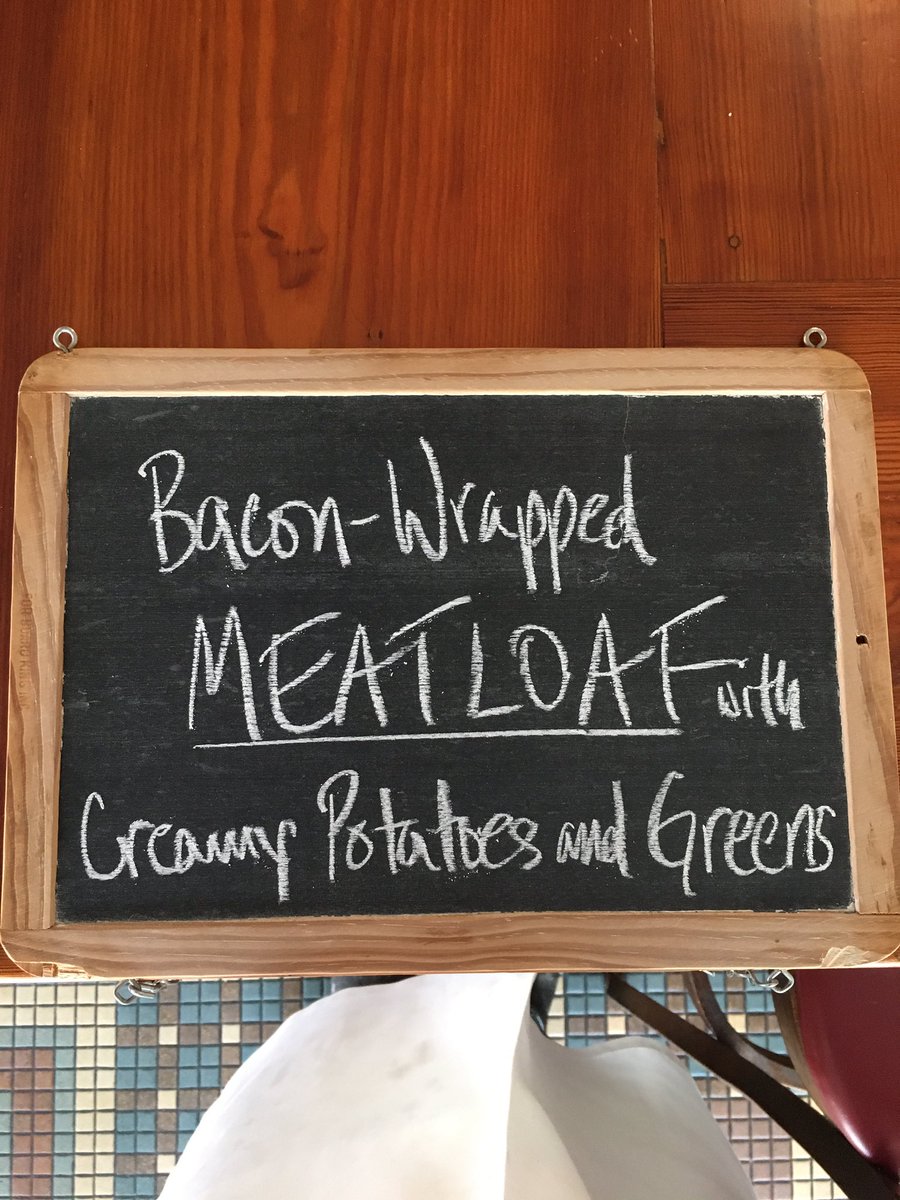 Bacon-Wrapped
MEATLOAF with
Creamy Potatoes and Greens